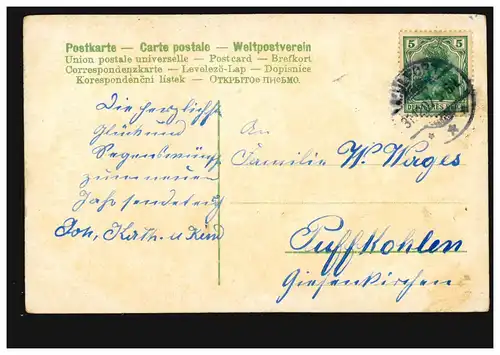 Postkarte — Carte postale — Weltpostverein
Union postale universelle — Postcard — Brefkort
Correspondenzkarte — Levelező-Lap — Dopisnice
Korespondenční lístek — ОТКРЫТОЕ ПИСЬМО.
5 5
DEUTSCHES REICH
Die herzlichst
Glück und
Segenswünsche
zum neuen
Jahr sendet euch
Joh, Kath. u Kind
An
Familie W. Wages
Puffkohlen
Giesenkirchen